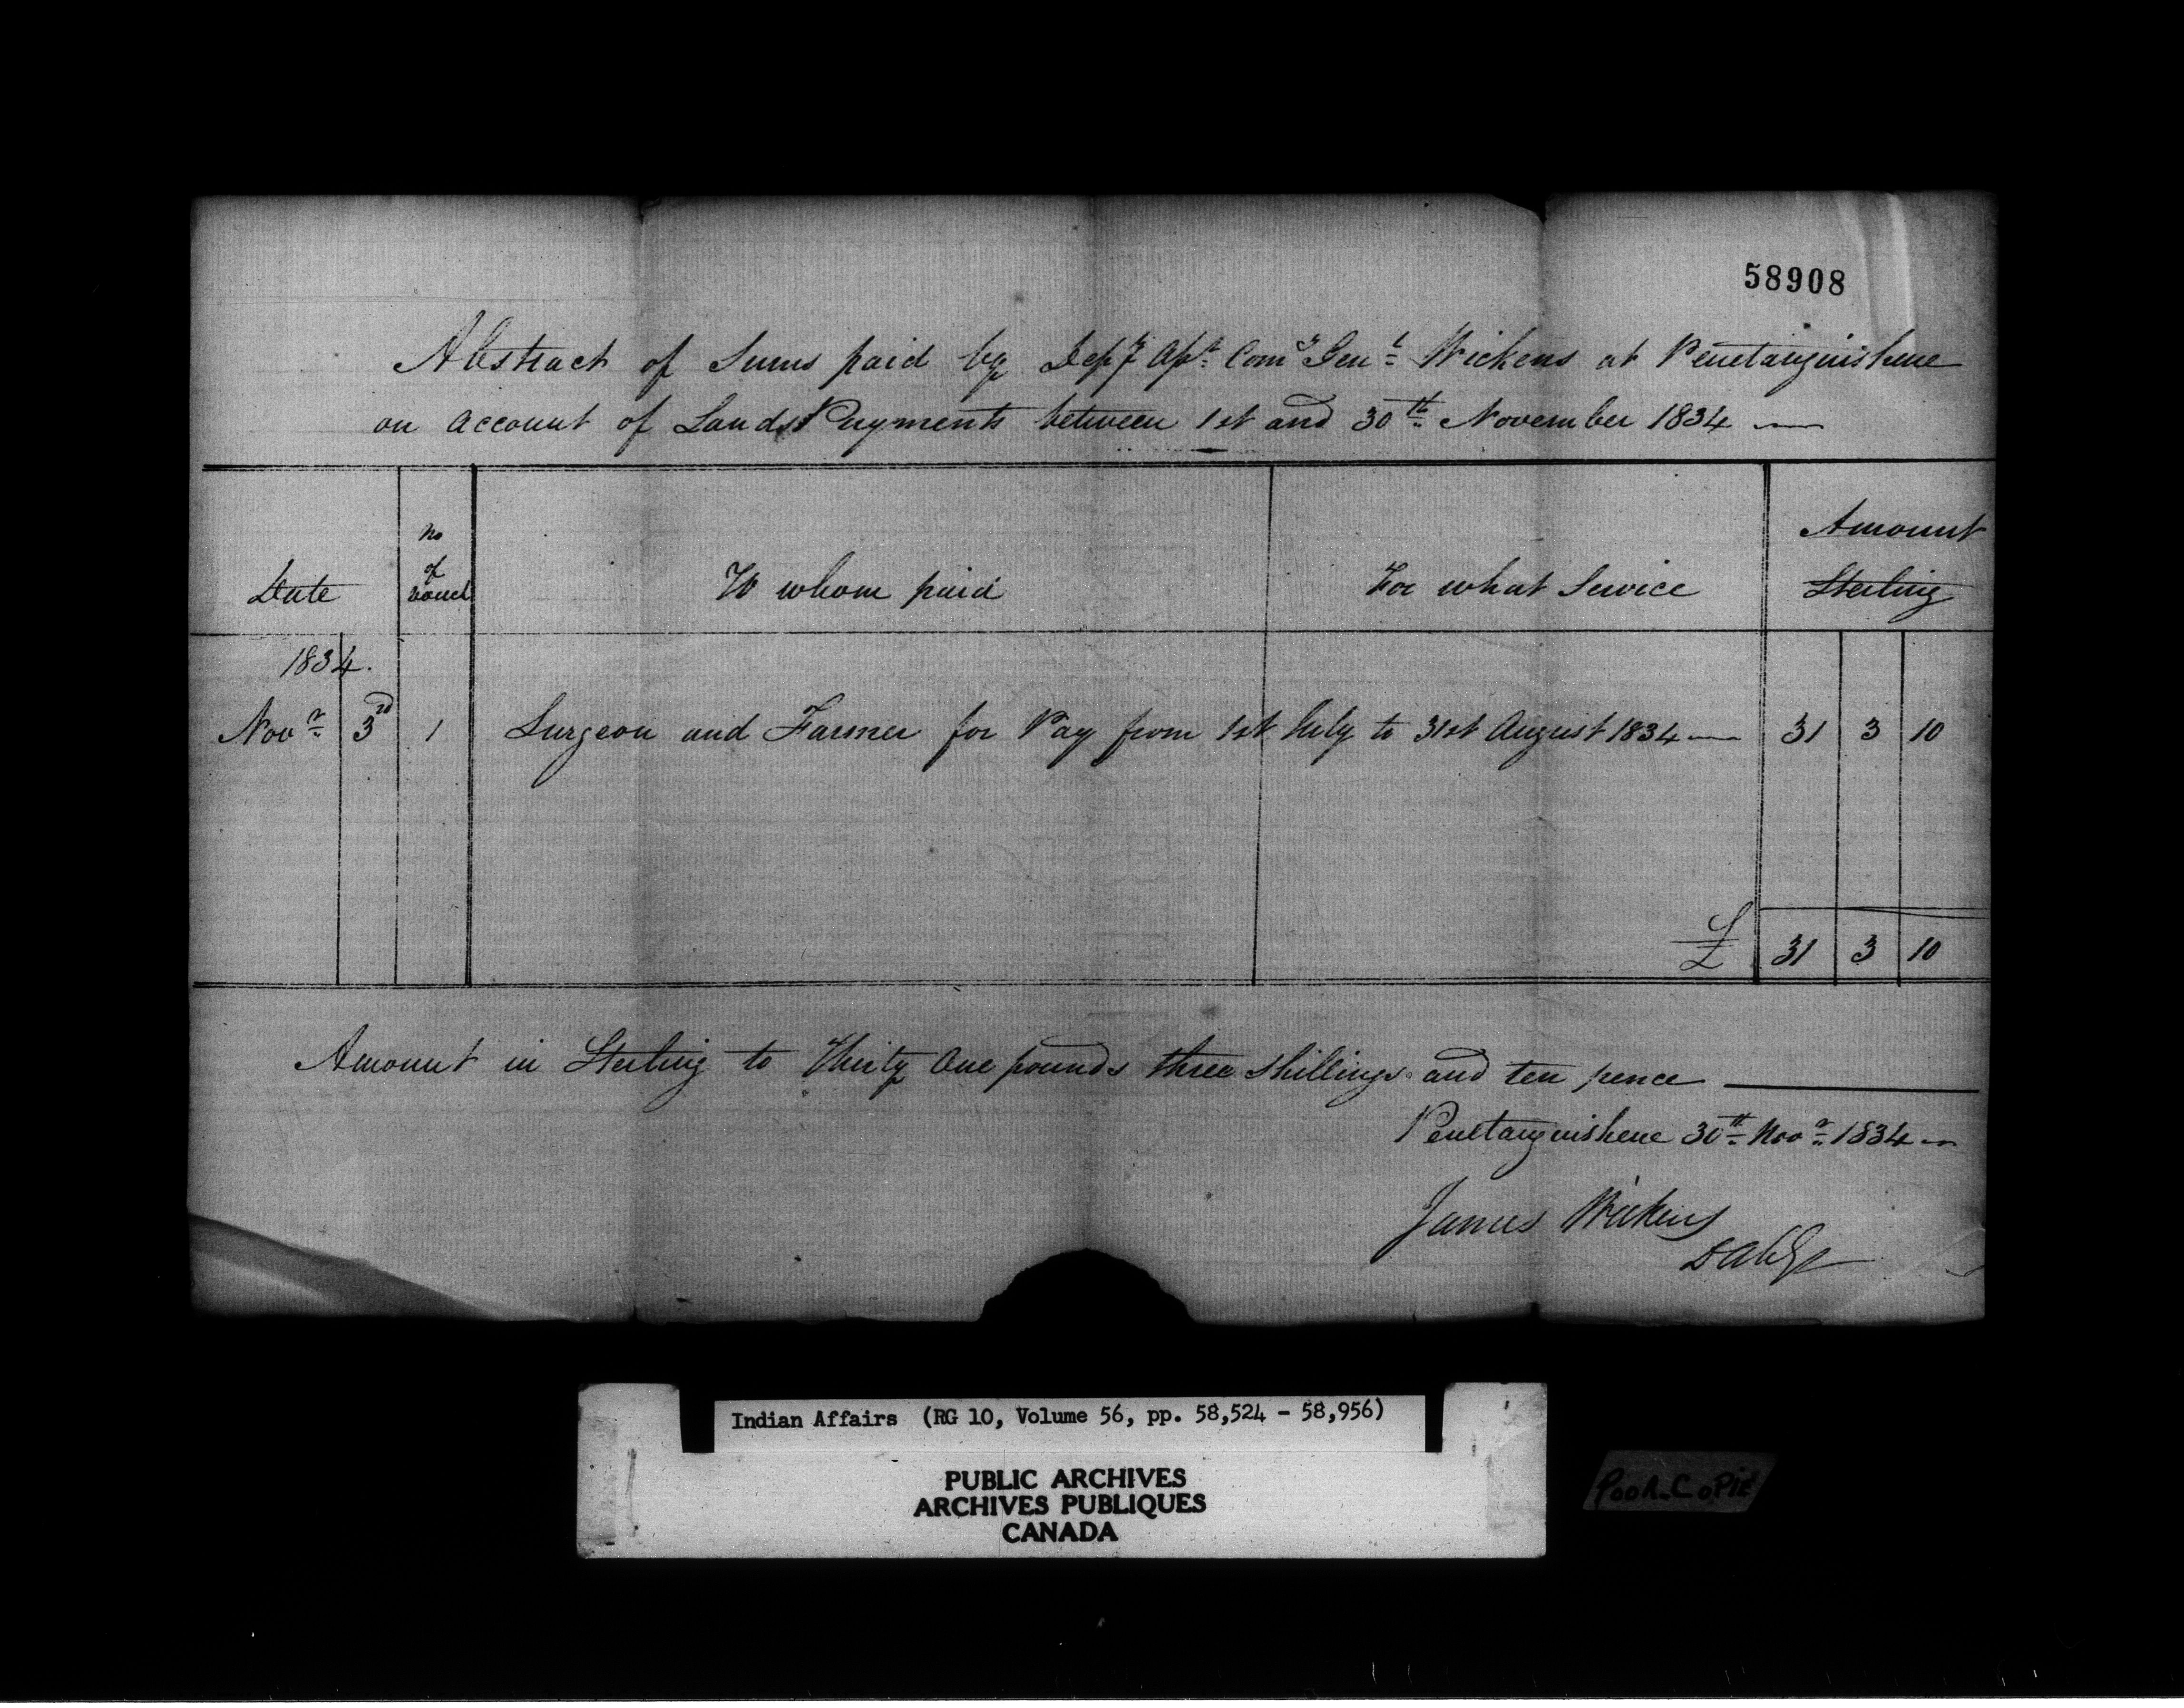 58908
Abstract of Sums paid by Depy Asst. Comy Genl. Wickens at Penetanguishene
on account of Lands Payments between 1st and 30th November 1834
Date
No
of
Vouch
To whom paid
For what Service
Amount
Sterling
1834.
Novr. 3rd 1 Surgeon and Farmer for Pay from 1st July to 31st August 1834 31 3 10
£ 31 3 10
Amount in Sterling to Thirty One pounds three shillings and ten pence
Penetanguishene 30th Novr. 1834
James Wickens
DACG
Indian Affairs (RG 10, Volume 56, pp. 58,524 - 58,956)
PUBLIC ARCHIVES
ARCHIVES PUBLIQUES
CANADA
POOR COPIE